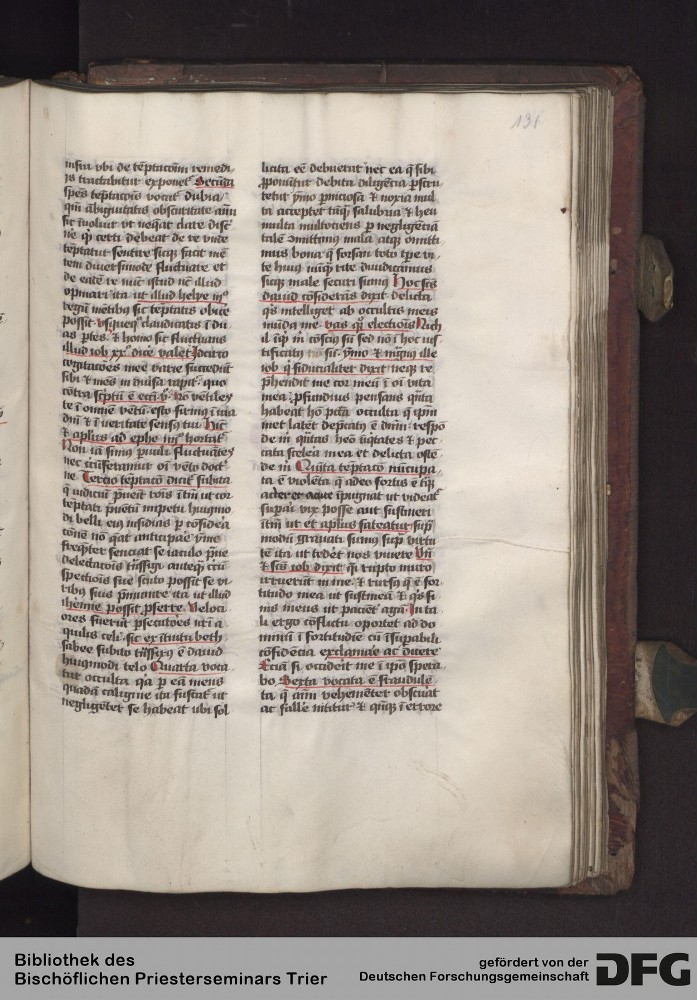 131
infra vbi de teptacom remedi
is tractabitur exponet Secuda
spes teptacois vocat dubia
qm abiguitatis obscuritate aim
sic ivoluit ut neqat clare disc
ne q certi debeat de re vnde
teptatur sentire sicq facit me
tem diuersimode fluctuare et
de ente re nuc istud nuc illud
opinari ita ut illud helye iij
regu metibus sic teptatis obice
possit vsquequo claudicatis i du
as ptes & homo sic fluctuans
illud iob xx dice valet Idcirco
cogitacoes mee varie succedut
sibi & mes in diusa rapit quo
cotra scptu e ecci v no vetiles
te i omne vetu esto firmus i uia
dni & i veritate sensus tui Huc
& aplus ad ephe iiij hortat
Non ia simus puuli fluctuates
nec circuferamur oi veto doct
ne Tercio teptaco dicit subita
q iudiciu puenit rois itm ut cor
teptati puetu impetu huiusmo
di belli eius insidias p cosidera
cone no qat anticipare ymo
freqter senciat se iaculo pue
delectacois tissigi anteq circu
spectiois sue scuto possit se vi
ribus suis pmunire ita ut illud
iheremie possit pferre Veloci
ores fuerut psecutores nri a
quilis celi sic ex ituitu beth
sabee subito tissixus e dauid
huiusmodi telo Quarta voca
tur occulta qa p ea mens
quada caligine ita fuscat ut
negligeter se habeat ubi sol
licita ee debuerat nec ea q sibi
pponutur debita diligecia pscru
tetur ymo pniciosa & noxia mul
ta acceptet taq salubria & heu
multa multociens p negligecia
tale omittimus mala atque omitti
mus bona q forsan toto tpe vi
te huius nuq rite diiudicamus
sicq male securi sumus Hoc scs
dauid cosiderans dixit delicta
qs intelliget ab occultis meis
muda me vas q electiois Nich
il iqt m cosciu su sed no i hoc ius
tificatus su ymo & nimius ille
iob q fiducialiter dixit neqe re
phendit me cor meu i oi vita
mea pfundius pensans quata
habeat ho pcta occulta q ipm
met latet depcatus e dnm respo
de m quatas heo iiqtates & pec
cata scelera mea et delicta oste
de m Quita teptaco nucupa
ta e violeta q adeo fortis e &
acriter ipugnat ut videat
supari vix posse aut sustineri
itm ut et aplus fateatur sup
modu grauati sumus sup virtu
te ita ut tedet nos viuere Vn
& scs iob dixit qi rupto muro
irruerut in me & rursus q e for
titudo mea ut sustinea & qs fi
nis meus ut pacient aga In ta
li ergo coflictu oportet ad do
minu i fortitudie cu isupabili
cofidecia exclamare ac dicere
Ecia si occiderit me i ipo spera
bo Sexta vocata e fraudule
ta q aim vehemeter obscurat
ac falle nititur & qnq i errore
Bibliothek des
Bischöflichen Priesterseminars Trier
gefördert von der
Deutschen Forschungsgemeinschaft
DFG